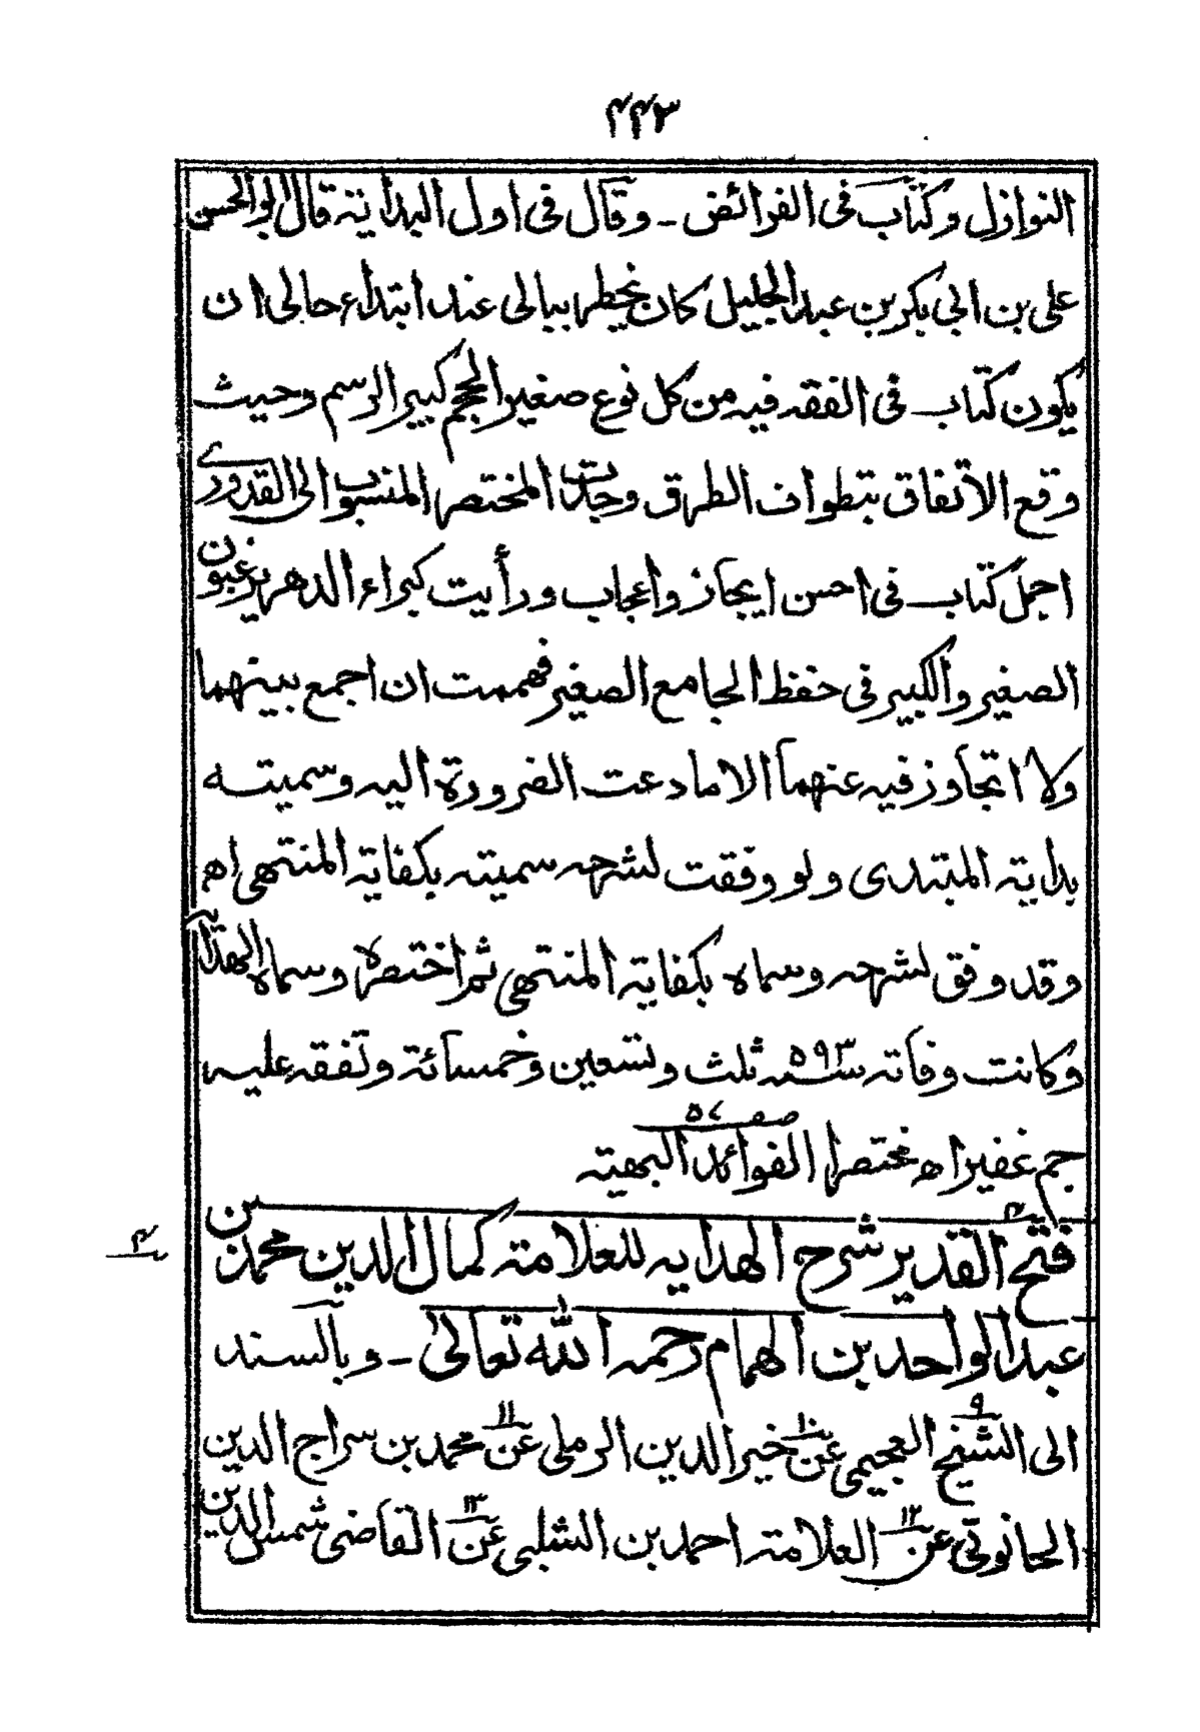 ۴۴۳
النوازل وكتاب فى الفرائض ـ وقال فى اول البداية قال ابو الحسن
على بن ابى بكر بن عبد الجليل كان يخطر ببالى عند ابتداء حالى ان
يكون كتاب فى الفقه فيه من كل نوع صغير الحجم كبير الرسم وحيث
وقع الاتفاق بتطواف الطرق وجدت المختصر المنسوب الى القدورى
اجمل كتاب فى احسن ايجاز واعجاب ورأيت كبراء الدهر يرغبون
الصغير والكبير فى حفظ الجامع الصغير فهممت ان اجمع بينهما
ولا اتجاوز فيه عنهما الا ما دعت الضرورة اليه وسميته
بداية المبتدى ولو وفقت لشرحه سميته بكفاية المنتهى اھ
وقد وفق لشرحه وسماه بكفاية المنتهى ثم اختصره وسماه الهداية
وكانت وفاته سنة ۵۹۳ ثلث وتسعين وخمسائة وتفقه عليه
جم غفير اھ مختصرا الفوائد البهية
فتح القدير شرح الهدايه للعلامة كمال الدين محمد بن
عبد الواحد بن الهمام رحمه الله تعالى ـ وبالسند
الى الشيخ ۹ العجيمى عن ۱۰ خير الدين الرملى عن ۱۱ محمد بن سراج الدين
الحانوتى عن ۱۲ العلامة احمد بن الشلبى عن ۱۳ القاضى شمس الدين